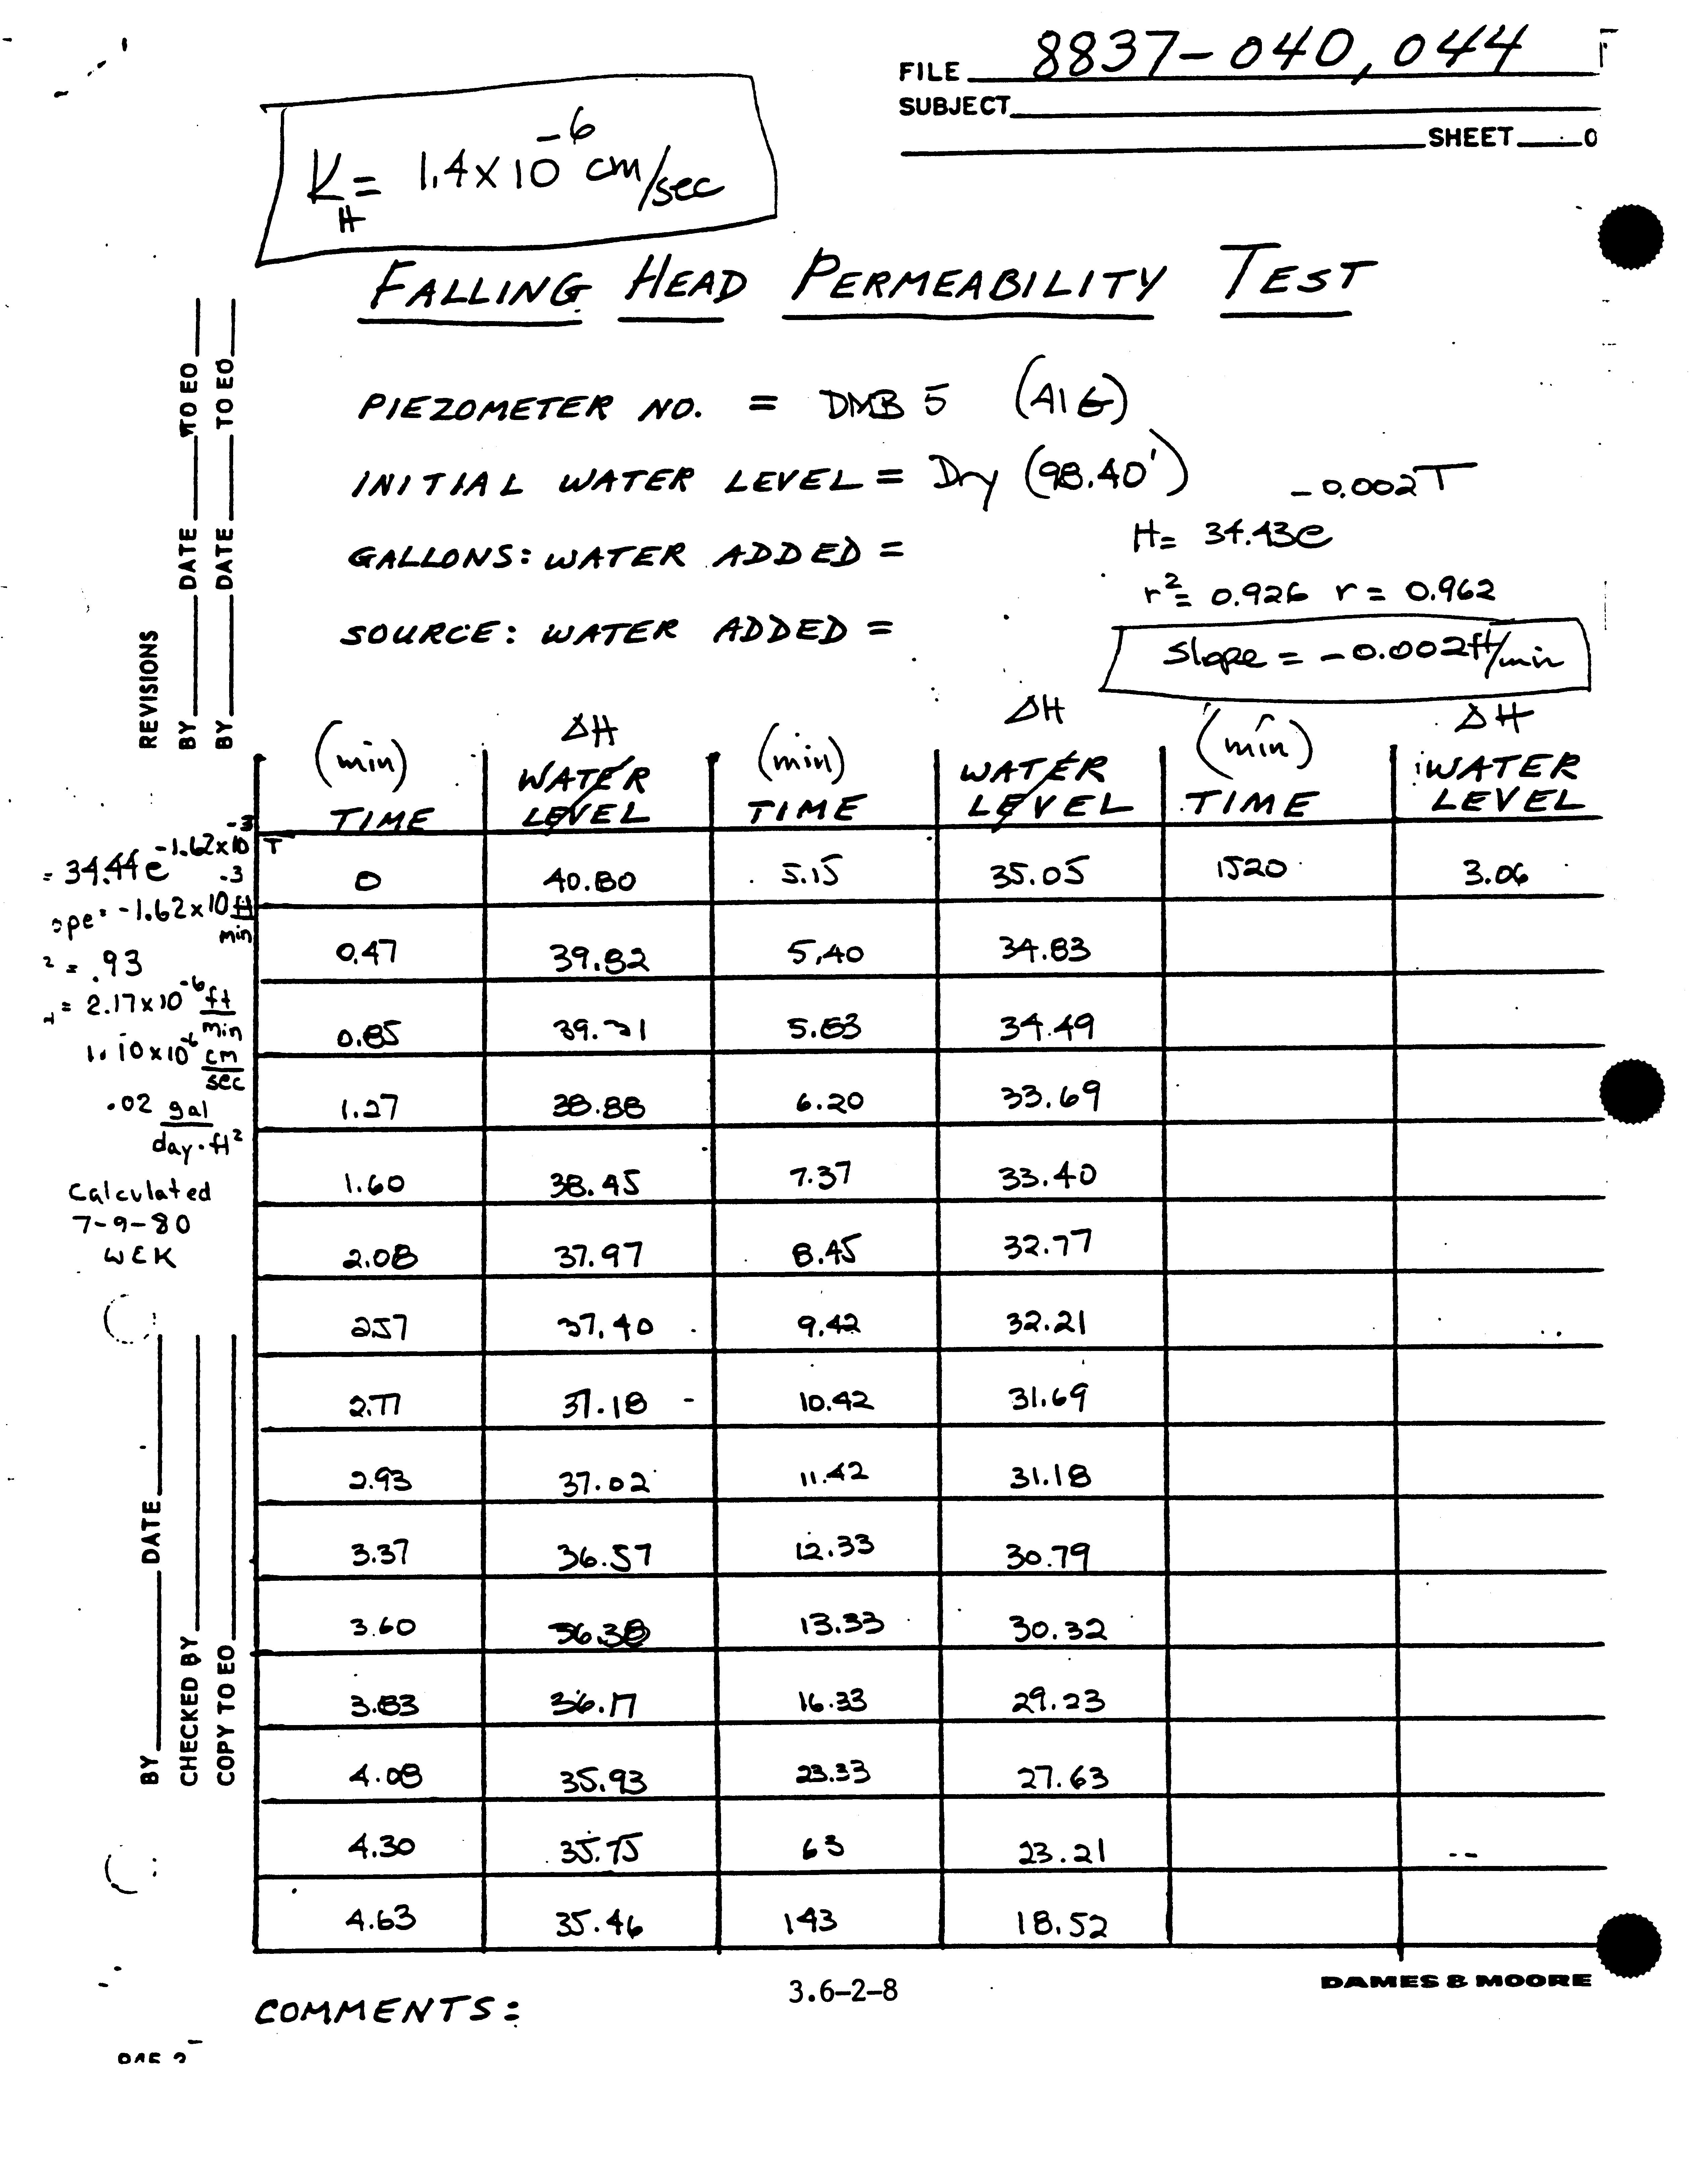 FILE 8837-040, 044
SUBJECT
SHEET 0
K_H = 1.4 x 10^-6 cm/sec
FALLING HEAD PERMEABILITY TEST
PIEZOMETER NO. = DMB 5 (A1G)
INITIAL WATER LEVEL = Dry (98.40')
H = 34.43e^-0.002T
GALLONS: WATER ADDED =
r² = 0.926 r = 0.962
SOURCE: WATER ADDED =
Slope = -0.002 ft/min
REVISIONS
BY DATE TO EO
BY DATE TO EO
(min) TIME ΔH WATER LEVEL (min) TIME ΔH WATER LEVEL (min) TIME ΔH WATER LEVEL
0 40.80 5.15 35.05 1520 3.06
0.47 39.82 5.40 34.83
0.85 39.31 5.83 34.49
1.27 38.88 6.20 33.69
1.60 38.45 7.37 33.40
2.08 37.97 8.45 32.77
2.57 37.40 9.42 32.21
2.77 37.18 10.42 31.69
2.93 37.02 11.42 31.18
3.37 36.57 12.33 30.79
3.60 36.38 13.33 30.32
3.83 36.17 16.33 29.23
4.08 35.93 23.33 27.63
4.30 35.75 63 23.21
4.63 35.46 143 18.52
= 34.44e^-1.62x10^-3 T
ope = -1.62 x 10^-3 ft/min
2 = .93
= 2.17 x 10^-6 ft/min
1.10 x 10^-6 cm/sec
.02 gal/day·ft²
Calculated
7-9-80
WEK
BY DATE
CHECKED BY
COPY TO EO
DAMES & MOORE
3.6-2-8
COMMENTS: